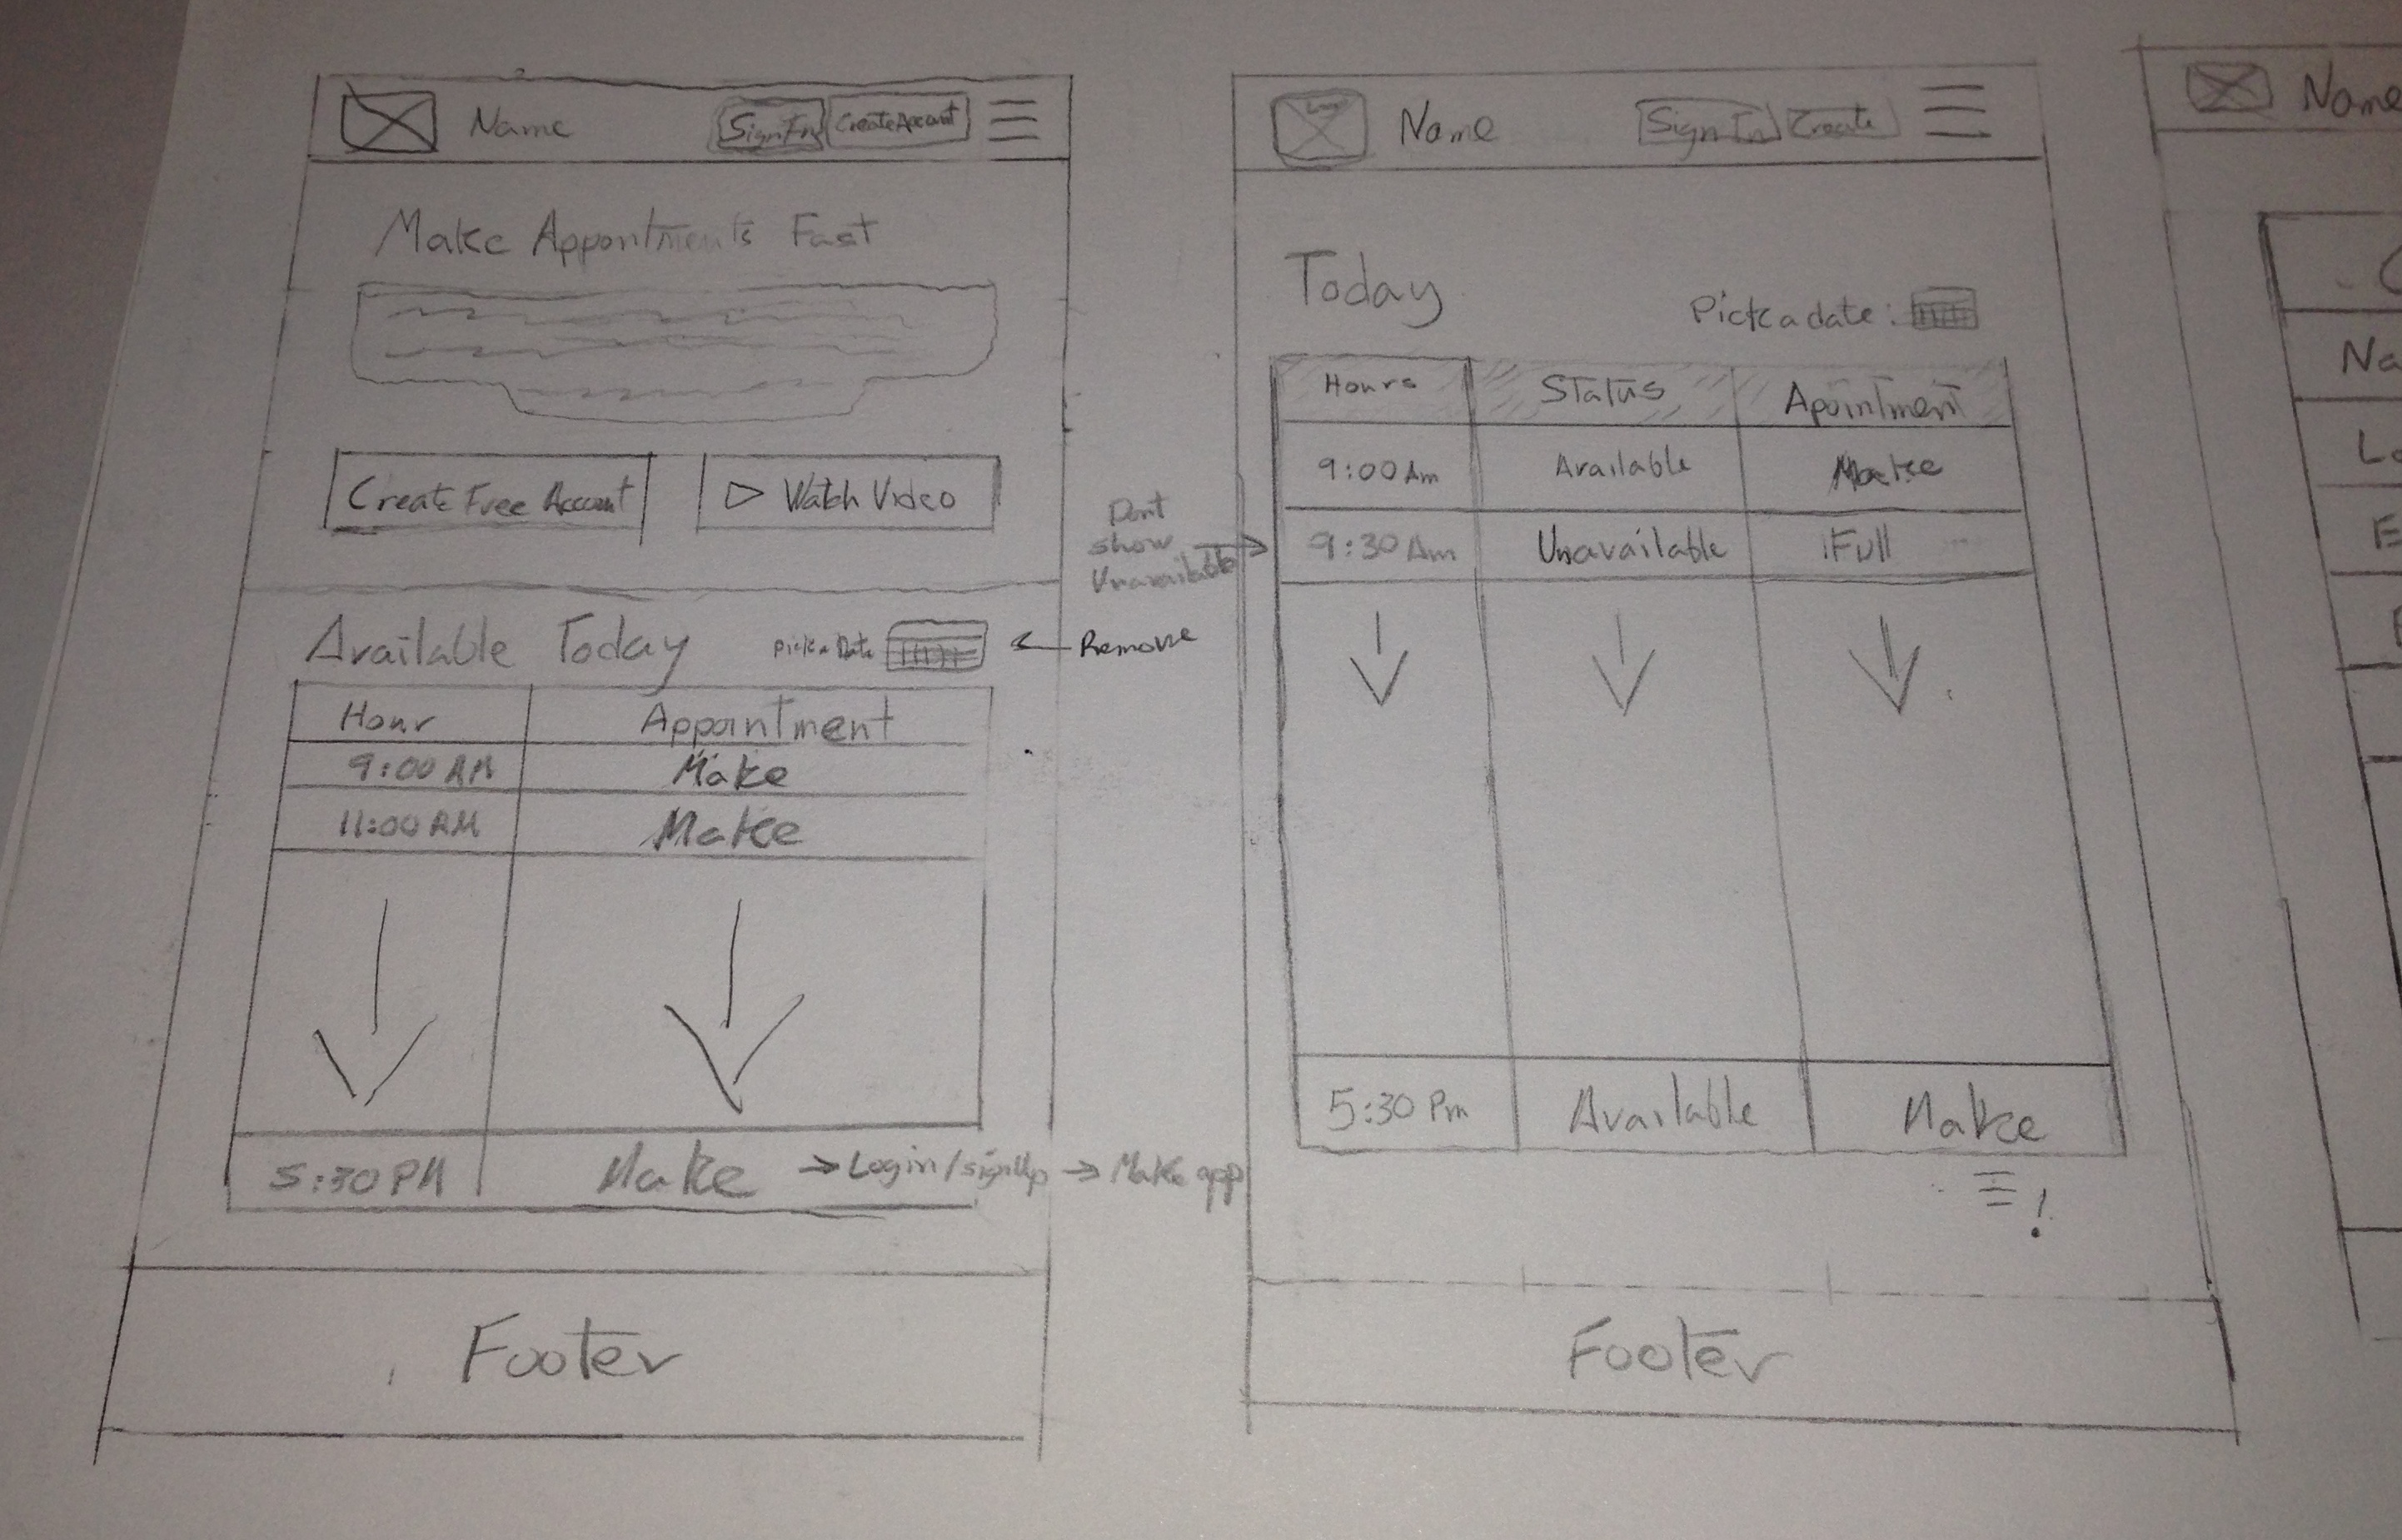 Name
Sign In
Create Account
Make Appointments Fast
Create Free Account
Watch Video
Available Today
Pick a Date
Remove
Hour Appointment
9:00 AM Make
11:00 AM Make
5:30 PM Make → Login/signUp → Make app
Footer
Logo
Name
Sign In
Create
Today
Pick a date:
Hours Status Apointment
9:00 Am Available Make
Dont
show
Unavailable
9:30 Am Unavailable Full
5:30 Pm Available Make
!
Footer
Name
Na